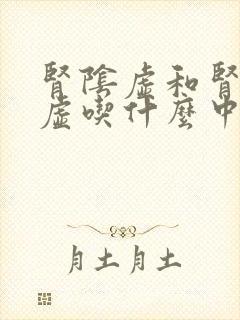 腎陰虛和腎
虛喫什麼中
月土月土